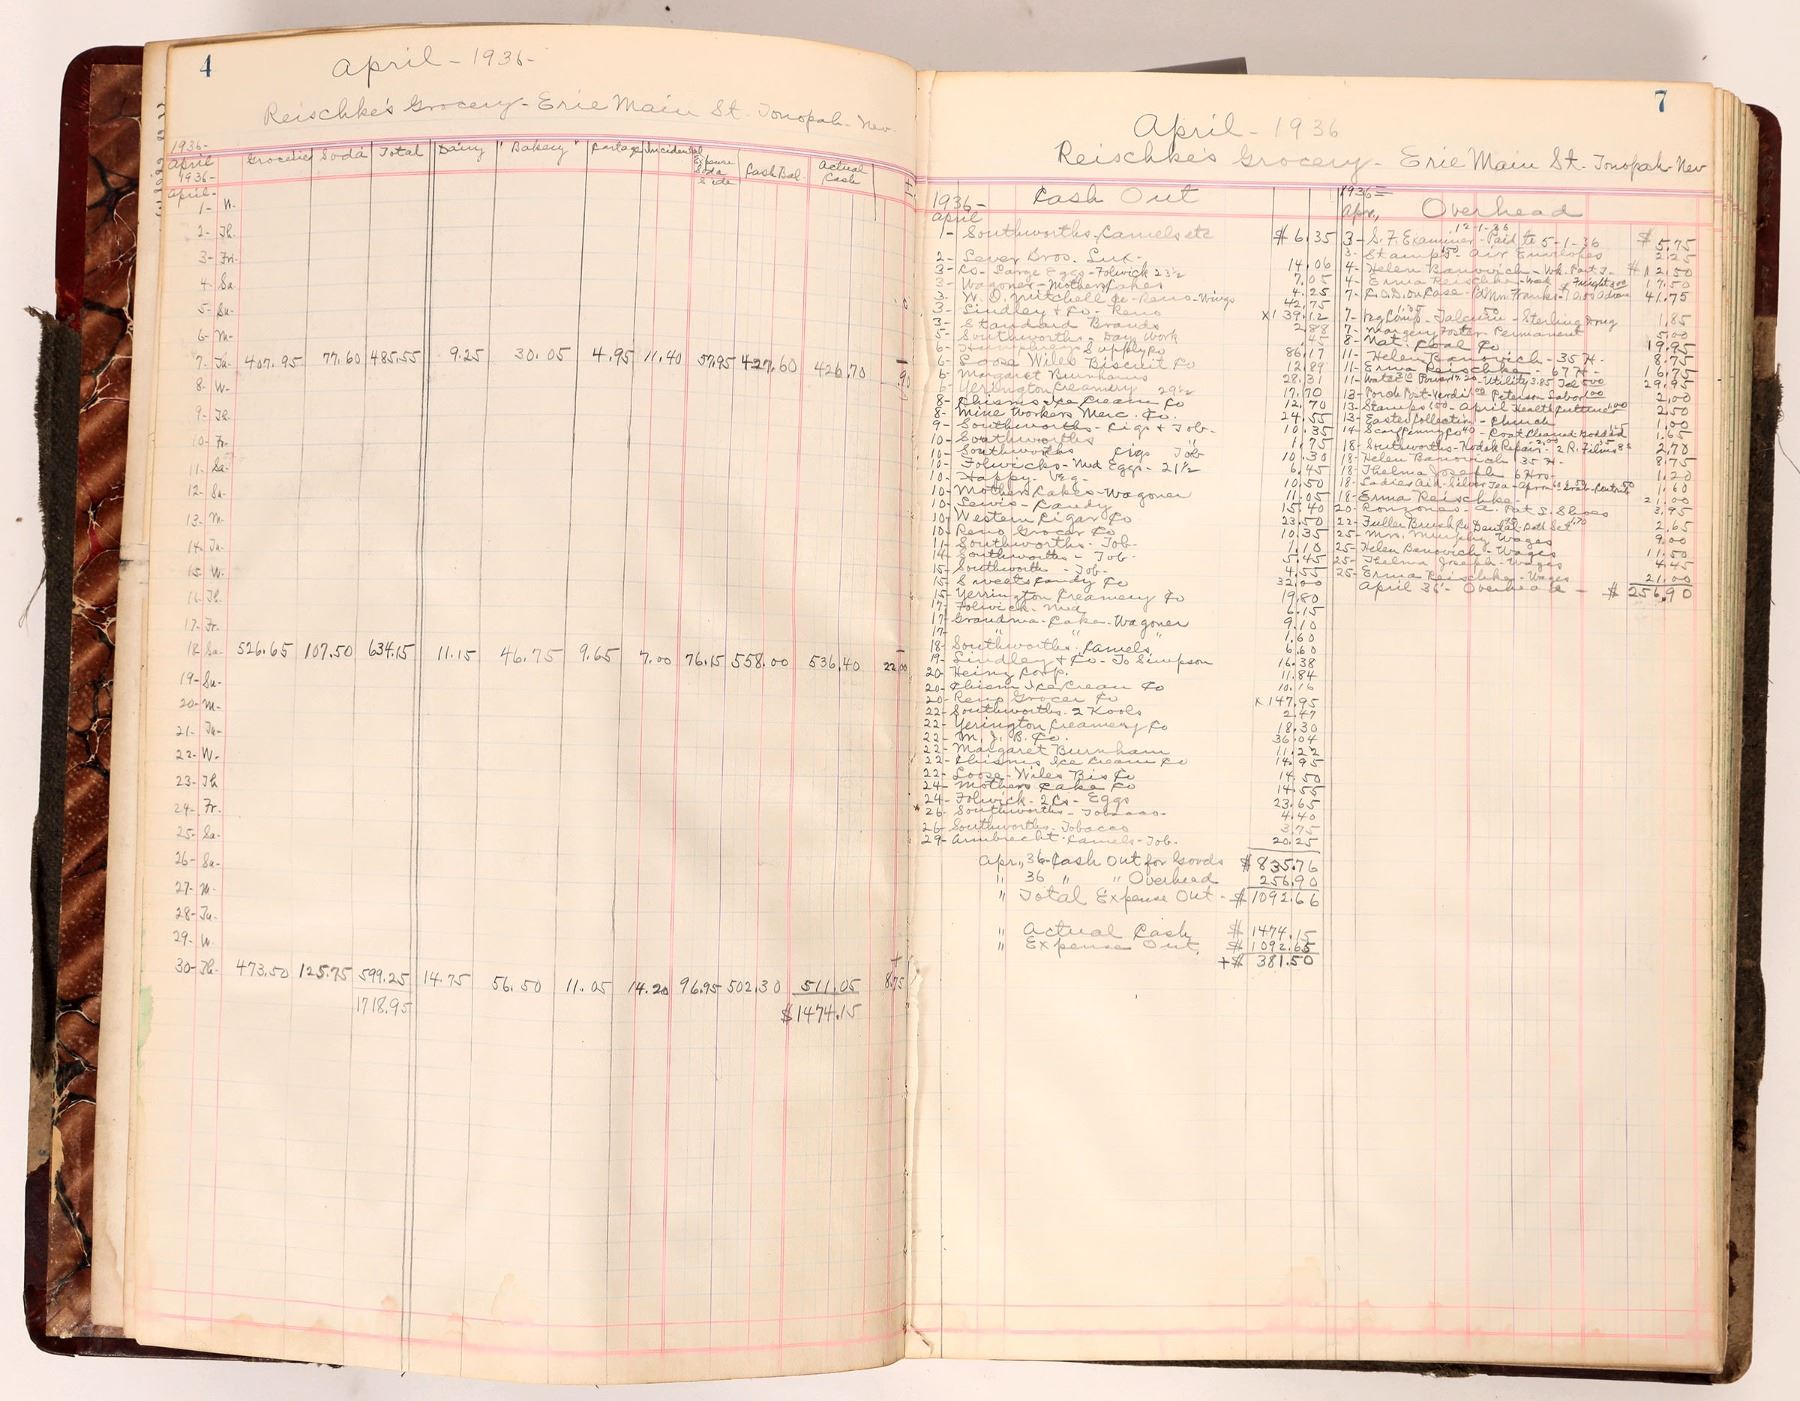 4
April - 1936 -
Reischke's Grocery - Erie Main St. Tonopah - Nev.
1936 - April Groceries Soda Total Dairy "Bakery" Cartage Incidental Expense Soda Side Cash Bal. Actual Cash ±
1936 -
April -
1 - W.
2 - Th.
3 - Fri.
4 - Sa.
5 - Su.
6 - M.
7 - Tu - 407.95 77.60 485.55 9.25 30.05 4.95 11.40 57.95 427.60 426.70 - .90
8 - W.
9 - Th.
10 - Fr.
11 - Sa -
12 - Su.
13 - M.
14 - Tu.
15 - W.
16 - Th.
17 - Fr.
18 - Sa - 526.65 107.50 634.15 11.15 46.75 9.65 7.00 76.15 558.00 536.40 22.00
19 - Su.
20 - M.
21 - Tu -
22 - W -
23 - Th
24 - Fr.
25 - Sa
26 - Su.
27 - M.
28 - Tu.
29 - W.
30 - Th. 473.50 125.75 599.25 14.75 56.50 11.05 14.20 96.95 502.30 511.05 + 8.75
1718.95 $1474.15
7
April - 1936
Reischke's Grocery - Erie Main St. Tonopah - Nev
1936 - Cash Out
April
1 - Southworths - Camels etc $ 6.35
2 - Lever Bros. Lux - 14.06
3 - Cs - Large Eggs - Folwick 23½ 7.05
3 - Wagoner - Mothers Cakes 4.25
3 - W. O. Mitchell Co - Reno - Wings 42.75
3 - Lindley & Co - Reno x 139.12
3 - Standard Brands 2.88
5 - Southworths - Day Work .45
6 - Supply Co 86.17
6 - Loose Wiles Biscuit Co 12.89
6 - Margaret Burnhams 28.31
6 - Yerington Creamery 29½ 17.70
8 - Chisms Ice Cream Co 12.70
8 - Mine Workers Merc. Co. 24.55
9 - Southworths - Cigs & Tob - 10.35
10 - Southworths " " 1.75
10 - Southworths Cigs Tob 10.30
10 - Folwicks - Med Eggs - 21½ 6.45
10 - Happy - Veg - 10.50
10 - Mothers Cakes - Wagoner 11.05
10 - Lewis - Candy 15.40
10 - Western Cigar Co 23.50
10 - Reno Grocer Co 10.35
11 - Southworths - Tob - 1.10
14 - Southworths - Tob - 5.45
15 - Southworth - Tob - 4.55
15 - Sweets Candy Co 32.00
15 - Yerrington Creamery Co 19.80
17 - Folwick - Med 6.15
17 - Grandma - Cake - Wagoner 9.10
17 - " " " 1.60
18 - Southworths - Camels 6.60
19 - Lindley & Co - To Simpson 16.38
20 - Heinz Corp. 11.84
20 - Chism Ice Cream Co 10.16
20 - Reno Grocer Co x 147.95
22 - Southworths - 2 Kools 2.47
22 - Yerington Creamery Co 18.30
22 - M. J. B. Co. 36.04
22 - Margaret Burnham 11.22
22 - Chisms Ice Cream Co 14.95
22 - Loose - Wiles Bis Co 14.50
24 - Mothers Cake Co 14.55
24 - Folwick - 2 Cs - Eggs 23.65
26 - Southworths - Tobacco - 4.40
26 - Southworths - Tobacco 3.75
29 - Armbrecht - Camels - Tob - 20.25
Apr., 36 - Cash Out for Goods $ 835.76
" 36 " " Overhead 256.90
" Total Expense Out - $ 1092.66
" Actual Cash $ 1474.15
" Expense Out. $ 1092.65
+ $ 381.50
1936 -
Apr., Overhead
12-1-36
3 - S. F. Examiner - Paid to 5-1-36 $ 5.75
3 - Stamps 1.50 - Air Envelopes 2.25
4 - Helen Banovich - Wk. Part T - $ 12.50
4 - Erma Reischke - Week 17.50
7 - C.O.D. on Case - Pd Mr. Franks - 41.75
7 - Comp - Talcum - Sterling Drug 1.85
7 - Margery Foster - Permanent 5.00
8 - Nat. Coal Co 19.95
11 - Helen Banovich - 35 H - 8.75
11 - Erma Reischke - 67 H - 16.75
11 - Water Power 17.20 - Utility 3.85 Tel 5.00 29.95
13 - Porch Post - Verdi 1.00 Peterson Labor 1.00 2.00
13 - Stamps 1.50 - April Health 1.00 2.50
13 - Easter Collection - Church 1.00
14 - Co 40 - Coat Cleaned Goddard 1.65
18 - Southworths - Kodak Repair 2.00 - 2 R. Films 2.70
18 - Helen Banovich 35 H - 8.75
18 - Thelma Joseph 6 Hrs - 1.20
18 - Ladies Aid - Silver Tea - 1.60
18 - Erma Reischke - 21.00
20 - Ronzones - A. Pat S. Shoes 3.95
22 - Fuller Brush Co Dental - Bath Set 1.70 2.65
25 - Mrs. Murphy Wages 9.00
25 - Helen Banovich - Wages 11.50
25 - Thelma Joseph - Wages 4.45
25 - Erma Reischke - Wages 21.00
April 36 - Overhead - $ 256.90